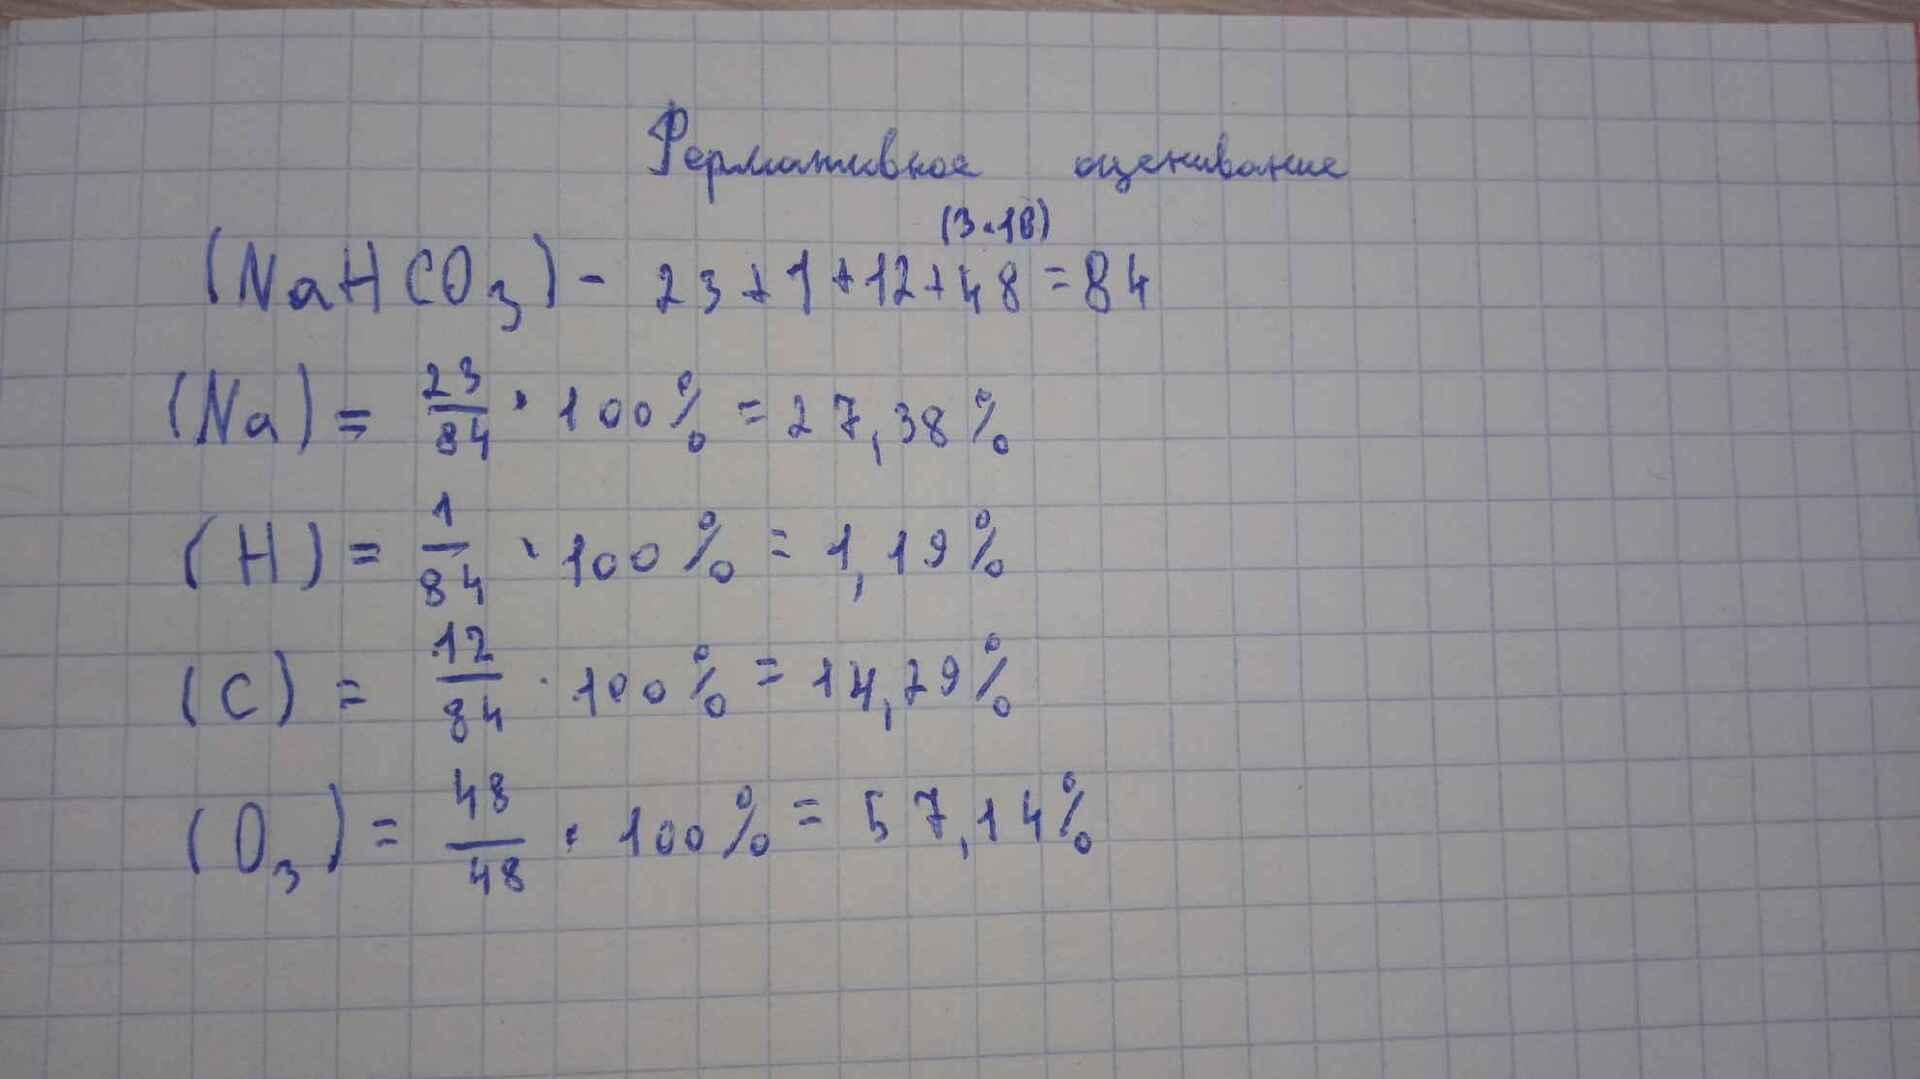 Формативное оценивание
(3·16)
(NaHCO₃) - 23+1+12+48=84
(Na) = 23/84 · 100% = 27,38%
(H) = 1/84 · 100% = 1,19%
(C) = 12/84 · 100% = 14,29%
(O₃) = 48/48 · 100% = 57,14%